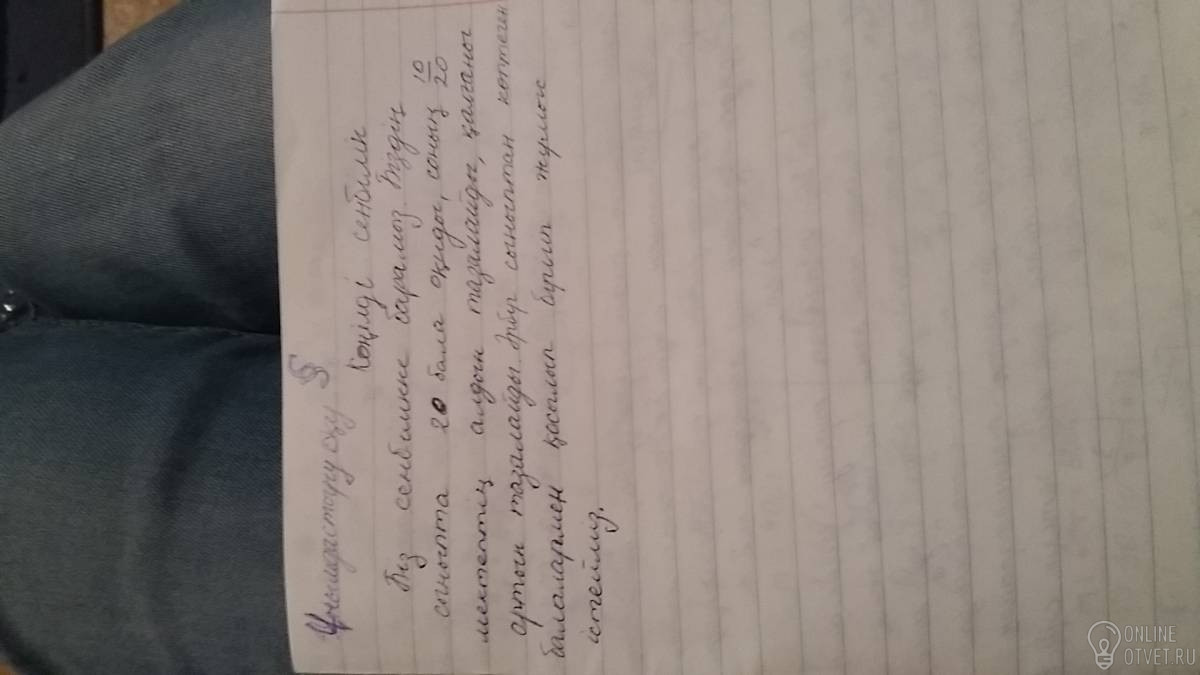 Ұйымдастыру оқу §
Көңілді сенбілік
Біз сенбилікке барамыз. Біздің
сыныпта 20 бала оқиды, соның 10/20
мектептің алдын тазалайды, қалғаны
артын тазалайды. Әрбір сыныптан көптеген
балалармен қосылып бүгіліп жұмыс
істейміз.
ONLINE
OTVET.RU